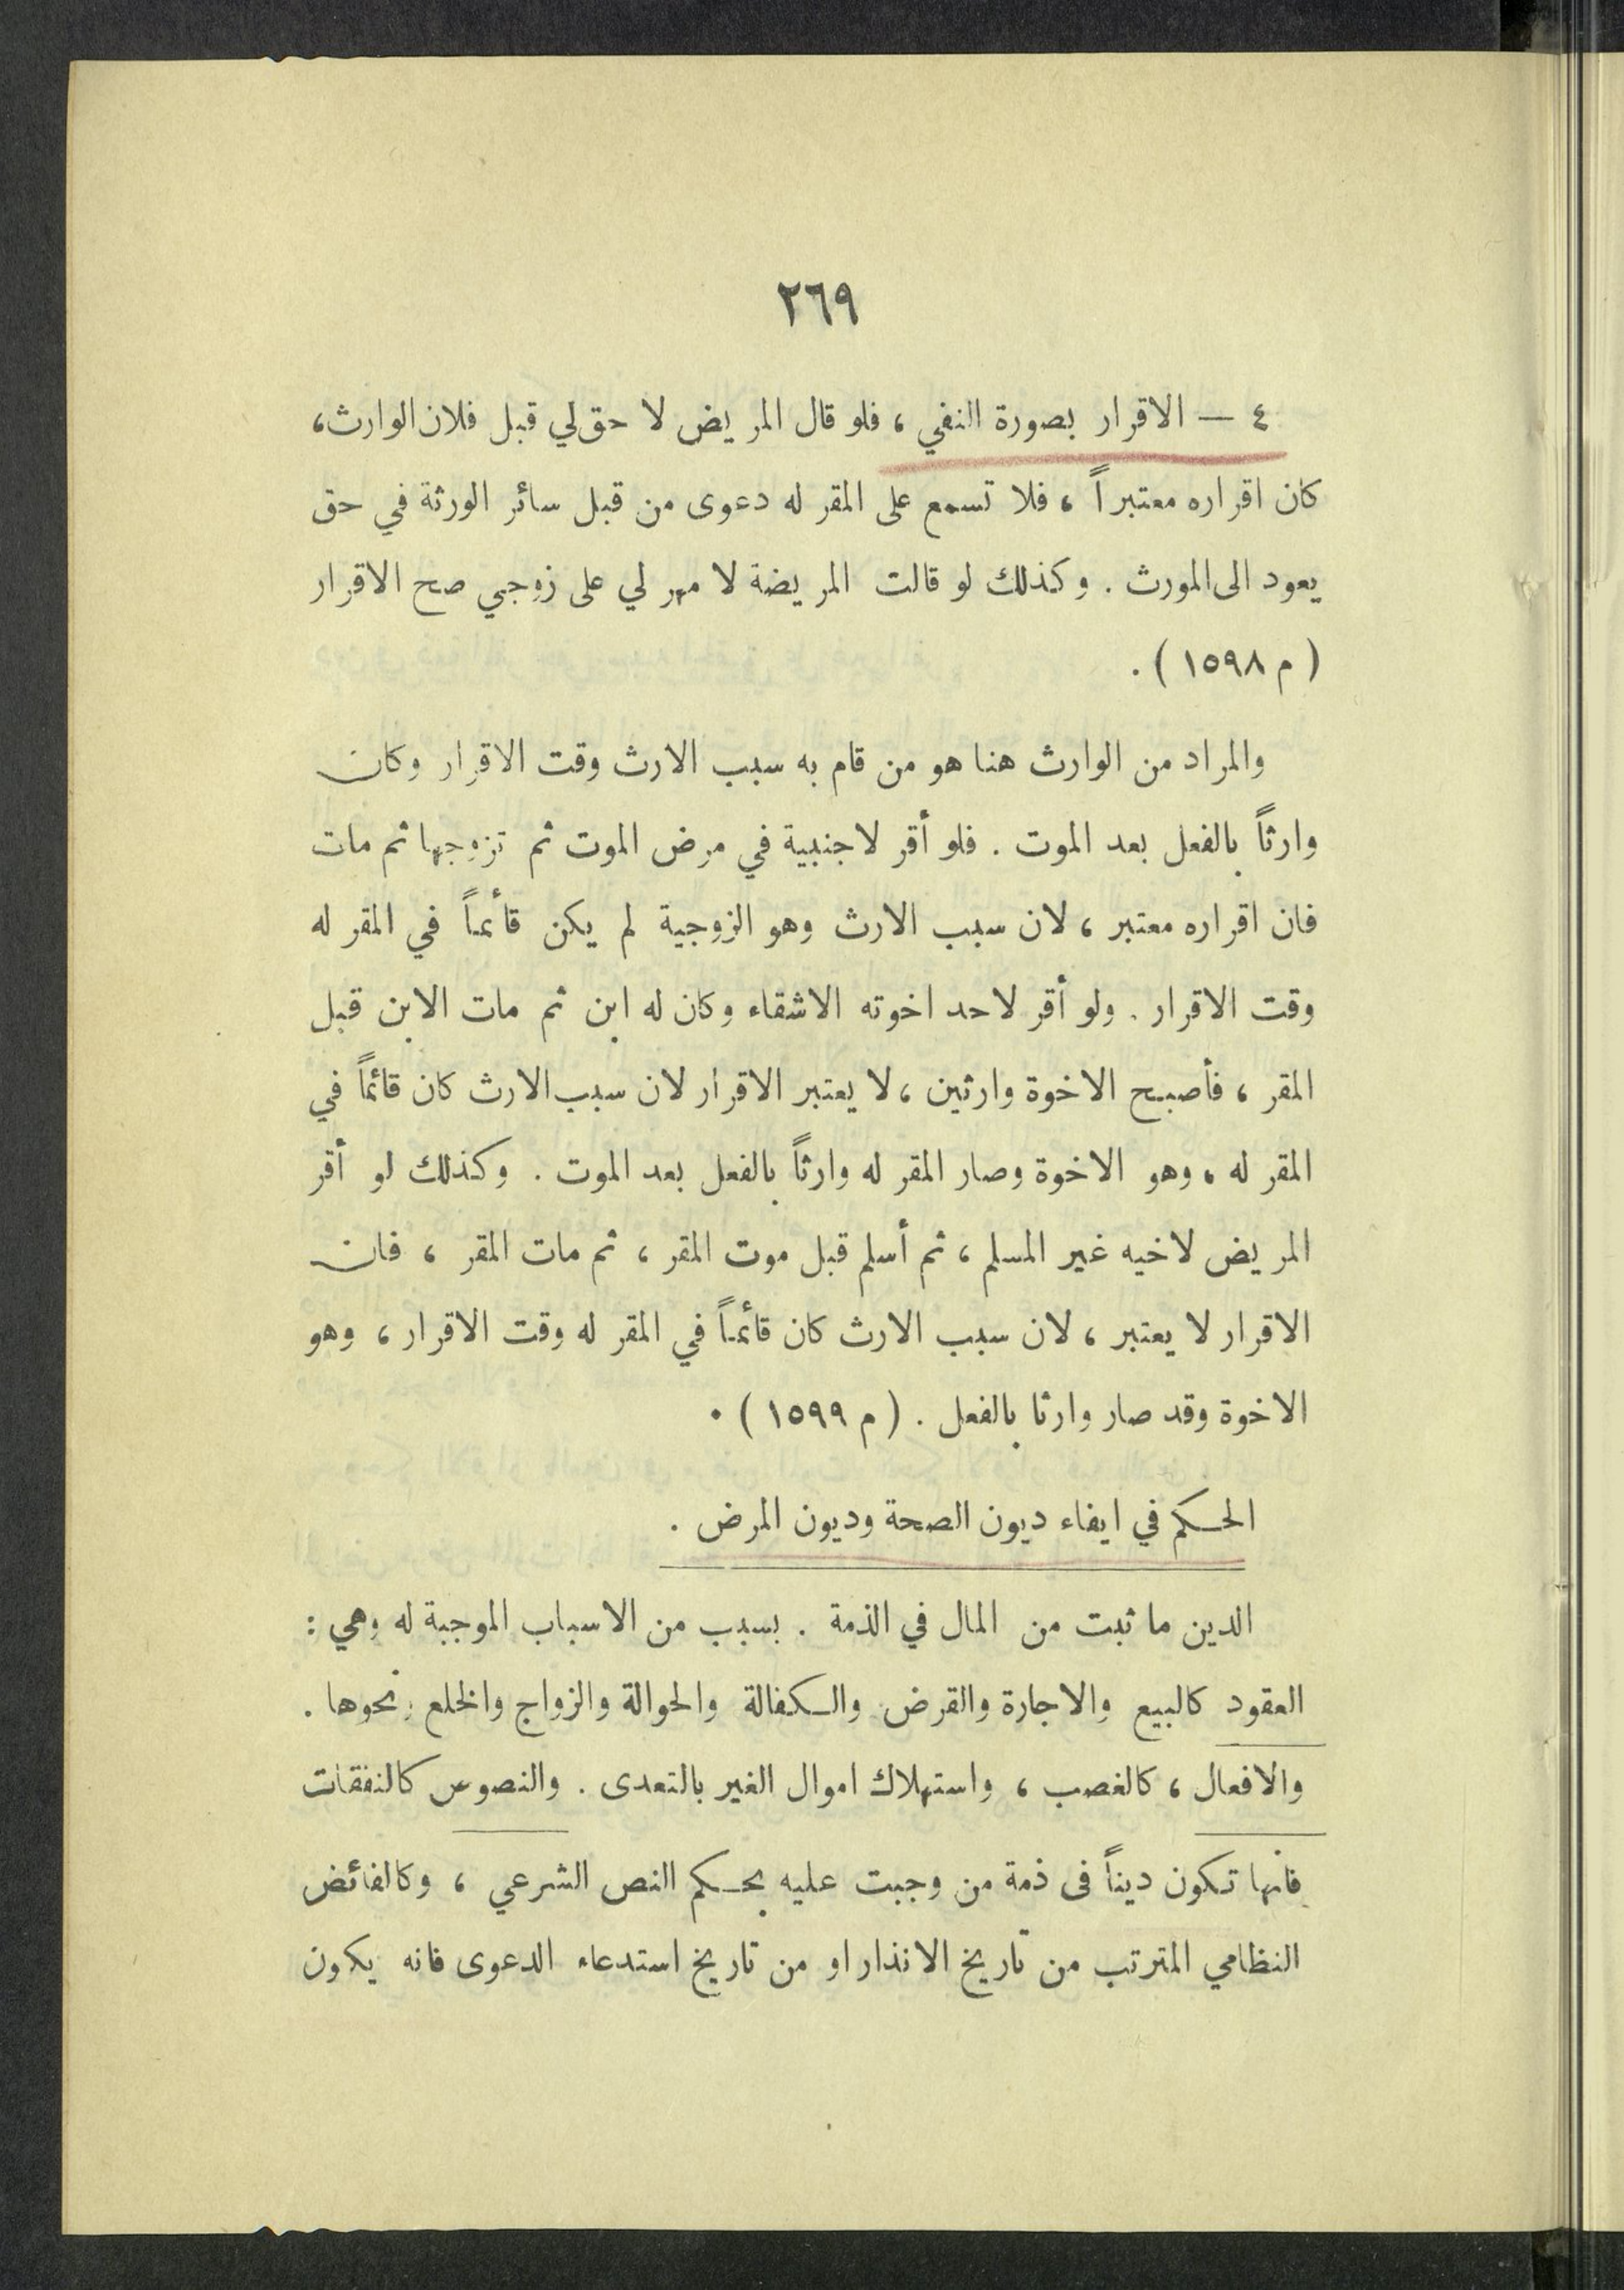 ٢٦٩
٤ — الاقرار بصورة النفي ، فلو قال المريض لا حق لي قبل فلان الوارث،
كان اقراره معتبراً ، فلا تسمع على المقر له دعوى من قبل سائر الورثة في حق
يعود الى المورث . وكذلك لو قالت المريضة لا مهر لي على زوجي صح الاقرار
( م ١٥٩٨ ) .
والمراد من الوارث هنا هو من قام به سبب الارث وقت الاقرار وكان
وارثاً بالفعل بعد الموت . فلو أقر لاجنبية في مرض الموت ثم تزوجها ثم مات
فان اقراره معتبر ، لان سبب الارث وهو الزوجية لم يكن قائماً في المقر له
وقت الاقرار . ولو أقر لاحد اخوته الاشقاء وكان له ابن ثم مات الابن قبل
المقر ، فأصبح الاخوة وارثين ، لا يعتبر الاقرار لان سبب الارث كان قائماً في
المقر له ، وهو الاخوة وصار المقر له وارثاً بالفعل بعد الموت . وكذلك لو أقر
المريض لاخيه غير المسلم ، ثم أسلم قبل موت المقر ، ثم مات المقر ، فان
الاقرار لا يعتبر ، لان سبب الارث كان قائماً في المقر له وقت الاقرار ، وهو
الاخوة وقد صار وارثا بالفعل . ( م ١٥٩٩ ) .
الحكم في ايفاء ديون الصحة وديون المرض .
الدين ما ثبت من المال في الذمة . بسبب من الاسباب الموجبة له وهي :
العقود كالبيع والاجارة والقرض والكفالة والحوالة والزواج والخلع ونحوها .
والافعال ، كالغصب ، واستهلاك اموال الغير بالتعدى . والنصوص كالنفقات
فانها تكون ديناً فى ذمة من وجبت عليه بحكم النص الشرعي ، وكالفائض
النظامي المترتب من تاريخ الانذار او من تاريخ استدعاء الدعوى فانه يكون